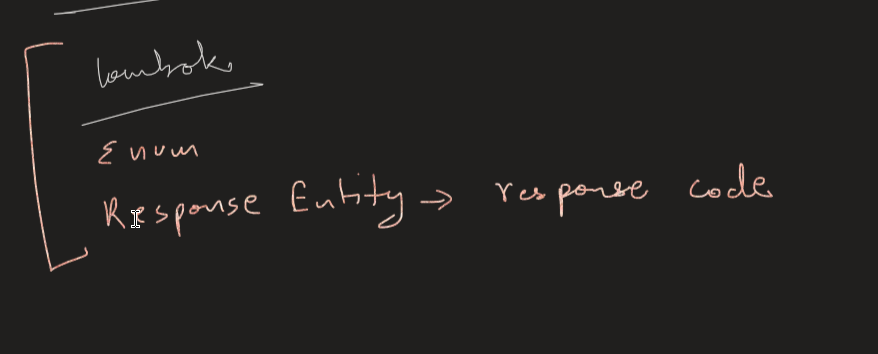 Lombok
Enum
Response Entity → response code